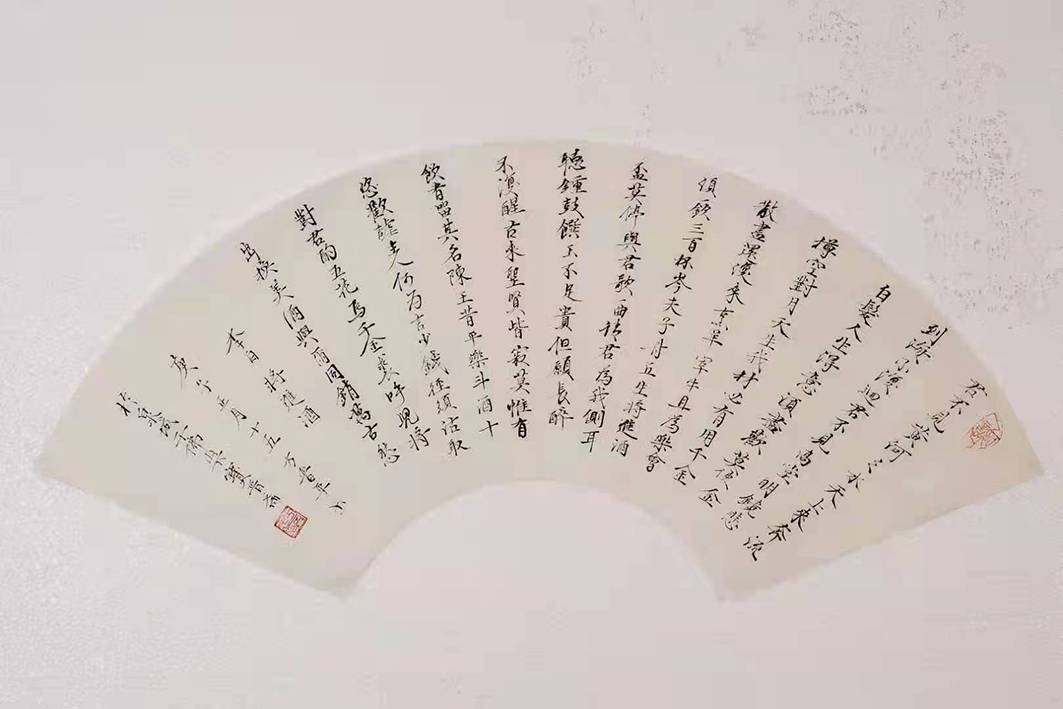 君不見黃河之水天上來奔流
到海不復迴君不見高堂明鏡悲
白髮人生得意須盡歡莫使金
樽空對月天生我材必有用千金
散盡還復來烹羊宰牛且為樂會
須飲三百杯岑夫子丹丘生將進酒
盃莫停與君歌一曲請君為我側耳
聽鍾鼓饌玉不足貴但願長醉
不復醒古來聖賢皆寂莫惟有
飲者留其名陳王昔平樂斗酒十
恣歡謔主人何為言少錢徑須沽取
對君酌五花馬千金裘呼兒將
出換美酒與爾同銷萬古愁
李白將進酒
庚子正月十五